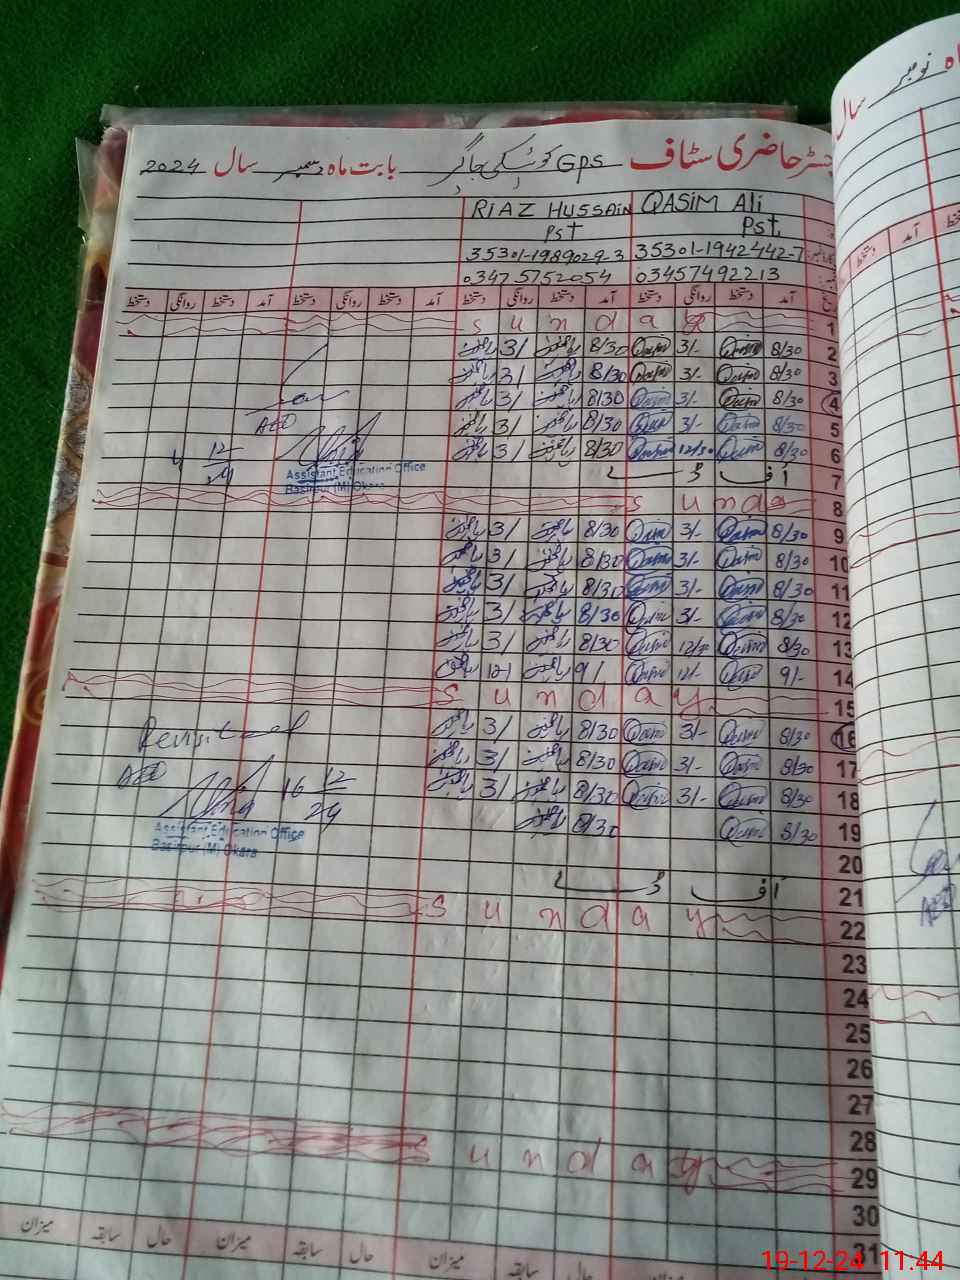 رجسٹر حاضری سٹاف GPS بابت ماہ دسمبر سال 2024
QASIM Ali RIAZ HUSSAIN
Pst Pst
35301-1942442-7 35301-1989029-3
03457492213 0347 5752054
آمد دستخط روانگی دستخط آمد دستخط روانگی دستخط آمد دستخط روانگی دستخط آمد دستخط روانگی دستخط
1 Sunday
2 8/30 Qasim 3/- Qasim 8/30 3/
3 8/30 Qasim 3/- Qasim 8/30 3/
4 8/30 Qasim 3/- Qasim 8/30 3/
5 8/30 Qasim 3/- Qasim 8/30 3/
6 8/30 Qasim 12/30 Qasim 8/30 3/
AEO
4 12/24
Assistant Education Office
Basirpur (M) Okara
7 آف ڈے
8 Sunda
9 8/30 Qasim 3/- Qasim 8/30 3/
10 8/30 Qasim 3/- Qasim 8/30 3/
11 8/30 Qasim 3/- Qasim 8/30 3/
12 8/30 Qasim 3/- Qasim 8/30 3/
13 8/30 Qasim Qasim 8/30 3/
14 9/- Qasim 12/- Qasim 9/ 12/
15 Sunday
16 8/30 Qasim 3/- Qasim 8/30 3/
17 8/30 Qasim 3/- Qasim 8/30 3/
18 8/30 Qasim 3/- Qasim 8/30 3/
19 8/30 Qasim 8/30
Revisited
AEO
16 12/24
Assistant Education Office
Basirpur (M) Okara
20
21 آف ڈے
22 Sunday
23
24
25
26
27
28
29 Sunday
30
31
حال سابقہ میزان حال سابقہ میزان حال سابقہ میزان
ماہ نومبر سال
آمد دستخط
AEO
19-12-24 11.44